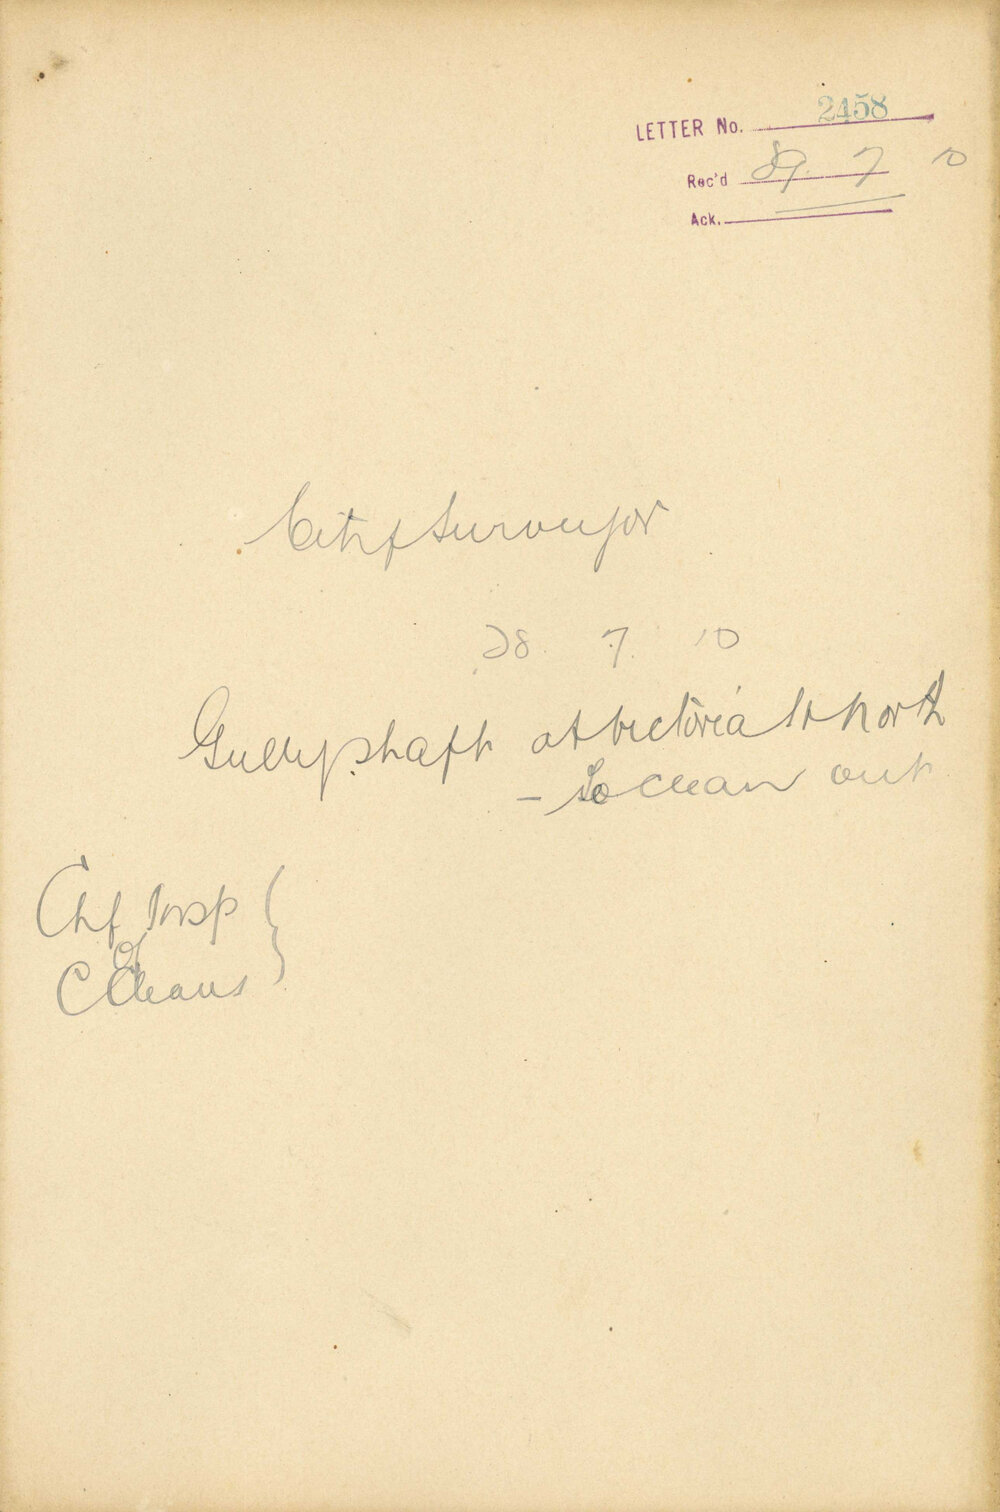 LETTER No. 2458
Rec'd 29. 7 10
Ack.
City Surveyor
28. 7. 10
Gully shaft at Victoria St North
- To clean out
Chf Insp
of
C Cleans